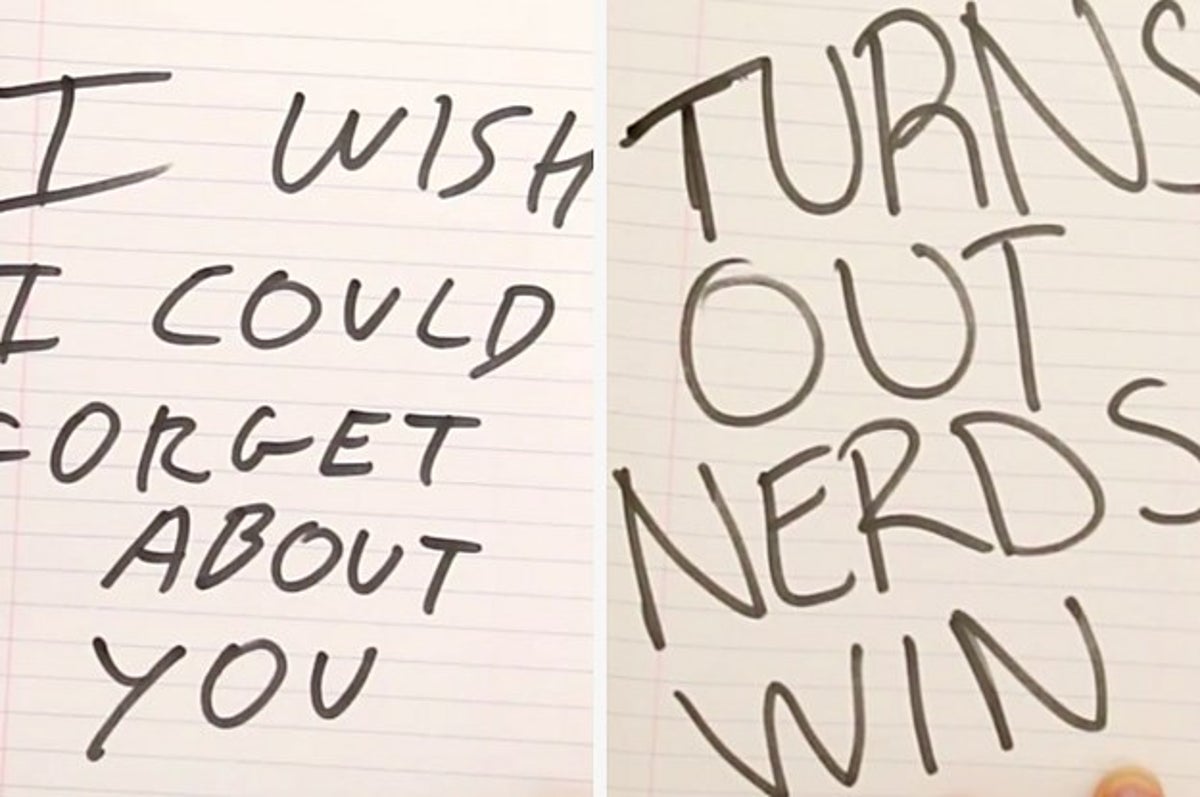 I WISH
I COULD
FORGET
ABOUT
YOU
TURNS
OUT
NERDS
WIN